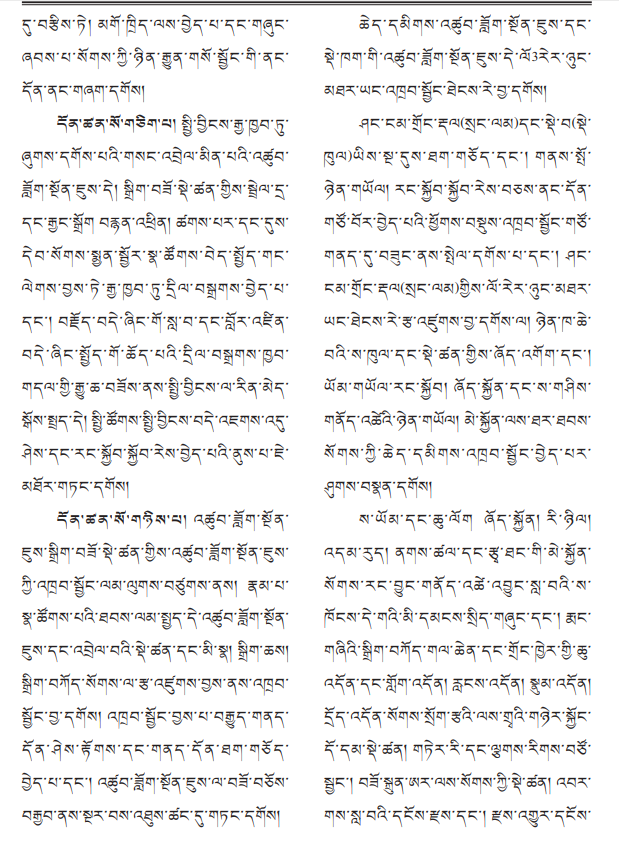 དུ་བརྩིས་ཏེ། མགོ་ཁྲིད་ལས་བྱེད་པ་དང་གཞུང་
ཞབས་པ་སོགས་ཀྱི་ཉིན་རྒྱུན་གསོ་སྦྱོང་གི་ནང་
དོན་ནང་གཞག་དགོས།
དོན་ཚན་སོ་གཅིག་པ། སྤྱི་བྱིངས་རྒྱ་ཁྱབ་ཏུ་
ཞུགས་དགོས་པའི་གསང་འབྲེལ་མིན་པའི་འཚུབ་
ཟློག་སྔོན་ཇུས་དེ། སྒྲིག་བཟོ་སྡེ་ཚན་གྱིས་སྦྲེལ་དྲ་
དང་རྒྱང་སྒྲོག བརྙན་འཕྲིན། ཚགས་པར་དང་དུས་
དེབ་སོགས་སྨྱན་སྦྱོར་སྣ་ཚོགས་བེད་སྤྱོད་གང་
ལེགས་བྱས་ཏེ་རྒྱ་ཁྱབ་ཏུ་དྲིལ་བསྒྲགས་བྱེད་པ་
དང་། བརྗོད་བདེ་ཞིང་གོ་སླ་བ་དང་བློར་འཛིན་
བདེ་ཞིང་སྤྱོད་གོ་ཆོད་པའི་དྲིལ་བསྒྲགས་ཁྱབ་
གདལ་གྱི་རྒྱུ་ཆ་བཟོས་ནས་སྤྱི་བྱིངས་ལ་རིན་མེད་
སྒོས་སྤྲད་དེ། སྤྱི་ཚོགས་སྤྱི་བྱིངས་བདེ་འཇགས་འདུ་
ཤེས་དང་རང་སྐྱོབ་སྐྱོབ་རེས་བྱེད་པའི་ནུས་པ་ཇེ་
མཐོར་གཏང་དགོས།
དོན་ཚན་སོ་གཉིས་པ། འཚུབ་ཟློག་སྔོན་
ཇུས་སྒྲིག་བཟོ་སྡེ་ཚན་གྱིས་འཚུབ་ཟློག་སྔོན་ཇུས་
ཀྱི་འཁྲབ་སྦྱོང་ལམ་ལུགས་བཙུགས་ནས། རྣམ་པ་
སྣ་ཚོགས་པའི་ཐབས་ལམ་སྤྱད་དེ་འཚུབ་ཟློག་སྔོན་
ཇུས་དང་འབྲེལ་བའི་སྡེ་ཚན་དང་མི་སྣ། སྒྲིག་ཆས།
སྒྲིག་བཀོད་སོགས་ལ་རྩ་འཛུགས་བྱས་ནས་འཁྲབ་
སྦྱོང་བྱ་དགོས། འཁྲབ་སྦྱོང་བྱས་པ་བརྒྱུད་གནད་
དོན་ཤེས་རྟོགས་དང་གནད་དོན་ཐག་གཅོད་
བྱེད་པ་དང་། འཚུབ་ཟློག་སྔོན་ཇུས་ལ་བཟོ་བཅོས་
བརྒྱབ་ནས་སྔར་བས་འཐུས་ཚང་དུ་གཏང་དགོས།
ཆེད་དམིགས་འཚུབ་ཟློག་སྔོན་ཇུས་དང་
སྡེ་ཁག་གི་འཚུབ་ཟློག་སྔོན་ཇུས་དེ་ལོ3རེར་ཉུང་
མཐར་ཡང་འཁྲབ་སྦྱོང་ཐེངས་རེ་བྱ་དགོས།
ཤང་ངམ་གྲོང་རྡལ(སྲང་ལམ)དང་སྡེ་བ(སྡེ་
ཁུལ)ཡིས་སྔ་དུས་ཐག་གཅོད་དང་། གནས་སྤོ་
ཉེན་གཡོལ། རང་སྐྱོབ་སྐྱོབ་རེས་བཅས་ནང་དོན་
གཙོ་བོར་བྱེད་པའི་ཕྱོགས་བསྡུས་འཁྲབ་སྦྱོང་གཙོ་
གནད་དུ་བཟུང་ནས་སྤེལ་དགོས་པ་དང་། ཤང་
ངམ་གྲོང་རྡལ(སྲང་ལམ)གྱིས་ལོ་རེར་ཉུང་མཐར་
ཡང་ཐེངས་རེ་རྩ་འཛུགས་བྱ་དགོས་ལ། ཉེན་ཁ་ཆེ་
བའི་ས་ཁུལ་དང་སྡེ་ཚན་གྱིས་ཞོད་འགོག་དང་།
ཡོམ་གཡོལ་རང་སྐྱོབ། ཞོད་སྐྱོན་དང་ས་གཤིས་
གནོད་འཚེའི་ཉེན་གཡོལ། མེ་སྐྱོན་ལས་ཐར་ཐབས་
སོགས་ཀྱི་ཆེད་དམིགས་འཁྲབ་སྦྱོང་བྱེད་པར་
ཤུགས་བསྣན་དགོས།
ས་ཡོམ་དང་ཆུ་ལོག ཞོད་སྐྱོན། རི་ཉིལ།
འདམ་རུད། ནགས་ཚལ་དང་རྩྭ་ཐང་གི་མེ་སྐྱོན་
སོགས་རང་བྱུང་གནོད་འཚེ་འབྱུང་སླ་བའི་ས་
ཁོངས་དེ་གའི་མི་དམངས་སྲིད་གཞུང་དང་། རྨང་
གཞིའི་སྒྲིག་བཀོད་གལ་ཆེན་དང་གྲོང་ཁྱེར་གྱི་ཆུ་
འདོན་དང་གློག་འདོན། རླངས་འདོན། སྣུམ་འདོན།
དྲོད་འདོན་སོགས་སྲོག་རྩའི་ལས་གྲྭའི་གཉེར་སྐྱོང་
དོ་དམ་སྡེ་ཚན། གཏེར་རི་དང་ལྕགས་རིགས་བཙོ་
སྦྱང་། བཟོ་སྐྲུན་ཨར་ལས་སོགས་ཀྱི་སྡེ་ཚན། འབར་
གས་སླ་བའི་དངོས་རྫས་དང་། རྫས་འགྱུར་དངོས་